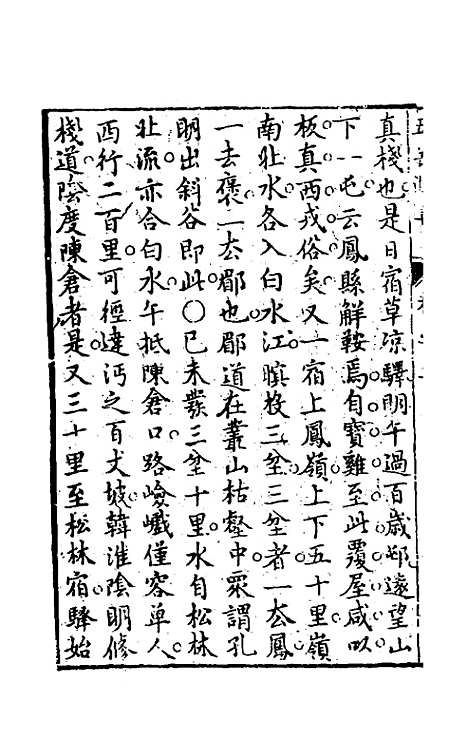 真棧也是日宿草涼驛明午過百歲邨遠望山
下一屯云鳳縣解鞍焉自寶雞至此覆屋咸以
板真西戎俗矣又一宿上鳳嶺上下五十里嶺
南北水各入白水江暝投三坌三坌者一去鳳
一去褒一去郿也郿道在叢山枯壑中眾謂孔
明出斜谷即此○己未發三坌十里水自松林
北流亦合白水午抵陳倉口路嶮巇僅容單人
西行二百里可徑達沔之百丈坡韓淮陰明修
棧道陰度陳倉者是又三十里至松林宿驛始